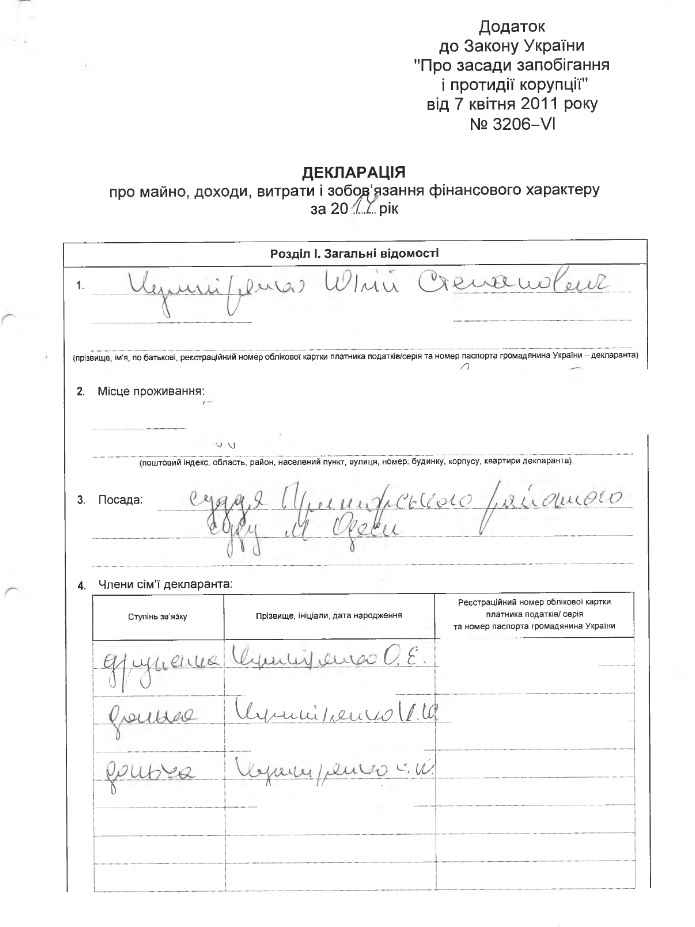 Додаток
до Закону України
"Про засади запобігання
і протидії корупції"
від 7 квітня 2011 року
№ 3206–VI
ДЕКЛАРАЦІЯ
про майно, доходи, витрати і зобов'язання фінансового характеру
за 20 рік
Розділ І. Загальні відомості
1. Юрій Степанович
(прізвище, ім'я, по батькові, реєстраційний номер облікової картки платника податків/серія та номер паспорта громадянина України – декларанта)
2. Місце проживання:
(поштовий індекс, область, район, населений пункт, вулиця, номер: будинку, корпусу, квартири декларанта)
3. Посада: суддя Приморського районного
суду м Одеси
4. Члени сім'ї декларанта:
Ступінь зв'язку
Прізвище, ініціали, дата народження
Реєстраційний номер облікової картки
платника податків/ серія
та номер паспорта громадянина України
дружина О.Е.
донька
донька